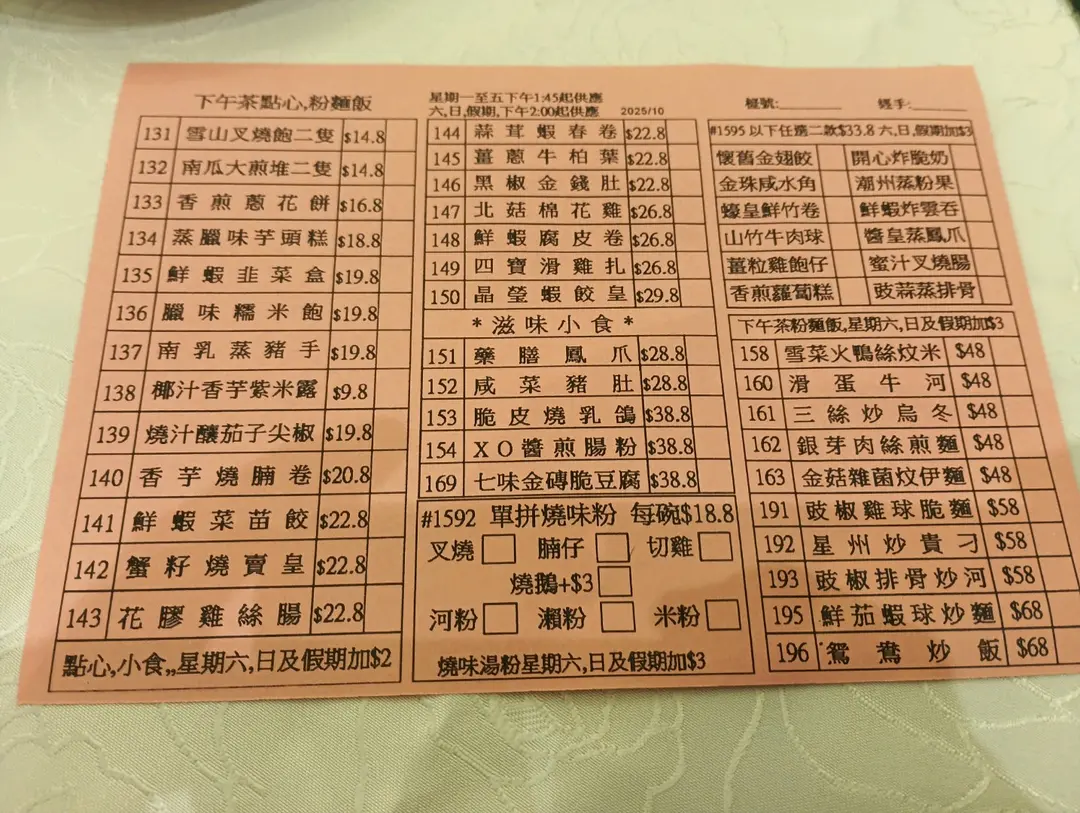 下午茶點心,粉麵飯
131 雪山叉燒飽二隻 $14.8
132 南瓜大煎堆二隻 $14.8
133 香煎蔥花餅 $16.8
134 蒸臘味芋頭糕 $18.8
135 鮮蝦韭菜盒 $19.8
136 臘味糯米飽 $19.8
137 南乳蒸豬手 $19.8
138 椰汁香芋紫米露 $9.8
139 燒汁釀茄子尖椒 $19.8
140 香芋燒腩卷 $20.8
141 鮮蝦菜苗餃 $22.8
142 蟹籽燒賣皇 $22.8
143 花膠雞絲腸 $22.8
點心,小食,,星期六,日及假期加$2
星期一至五下午1:45起供應
六,日,假期,下午2:00起供應 2025/10
144 蒜茸蝦春卷 $22.8
145 薑蔥牛柏葉 $22.8
146 黑椒金錢肚 $22.8
147 北菇棉花雞 $26.8
148 鮮蝦腐皮卷 $26.8
149 四寶滑雞扎 $26.8
150 晶瑩蝦餃皇 $29.8
*滋味小食*
151 藥膳鳳爪 $28.8
152 咸菜豬肚 $28.8
153 脆皮燒乳鴿 $38.8
154 XO醬煎腸粉 $38.8
169 七味金磚脆豆腐 $38.8
#1592 單拼燒味粉 每碗$18.8
叉燒 腩仔 切雞
燒鵝+$3
河粉 瀨粉 米粉
燒味湯粉星期六,日及假期加$3
檯號:________ 經手:________
#1595 以下任選二款$33.8 六,日,假期加$3
懷舊金翅餃 開心炸脆奶
金珠咸水角 潮州蒸粉果
蠔皇鮮竹卷 鮮蝦炸雲吞
山竹牛肉球 醬皇蒸鳳爪
薑粒雞飽仔 蜜汁叉燒腸
香煎蘿蔔糕 豉蒜蒸排骨
下午茶粉麵飯,星期六,日及假期加$3
158 雪菜火鴨絲炆米 $48
160 滑蛋牛河 $48
161 三絲炒烏冬 $48
162 銀芽肉絲煎麵 $48
163 金菇雜菌炆伊麵 $48
191 豉椒雞球脆麵 $58
192 星州炒貴刁 $58
193 豉椒排骨炒河 $58
195 鮮茄蝦球炒麵 $68
196 鴛鴦炒飯 $68